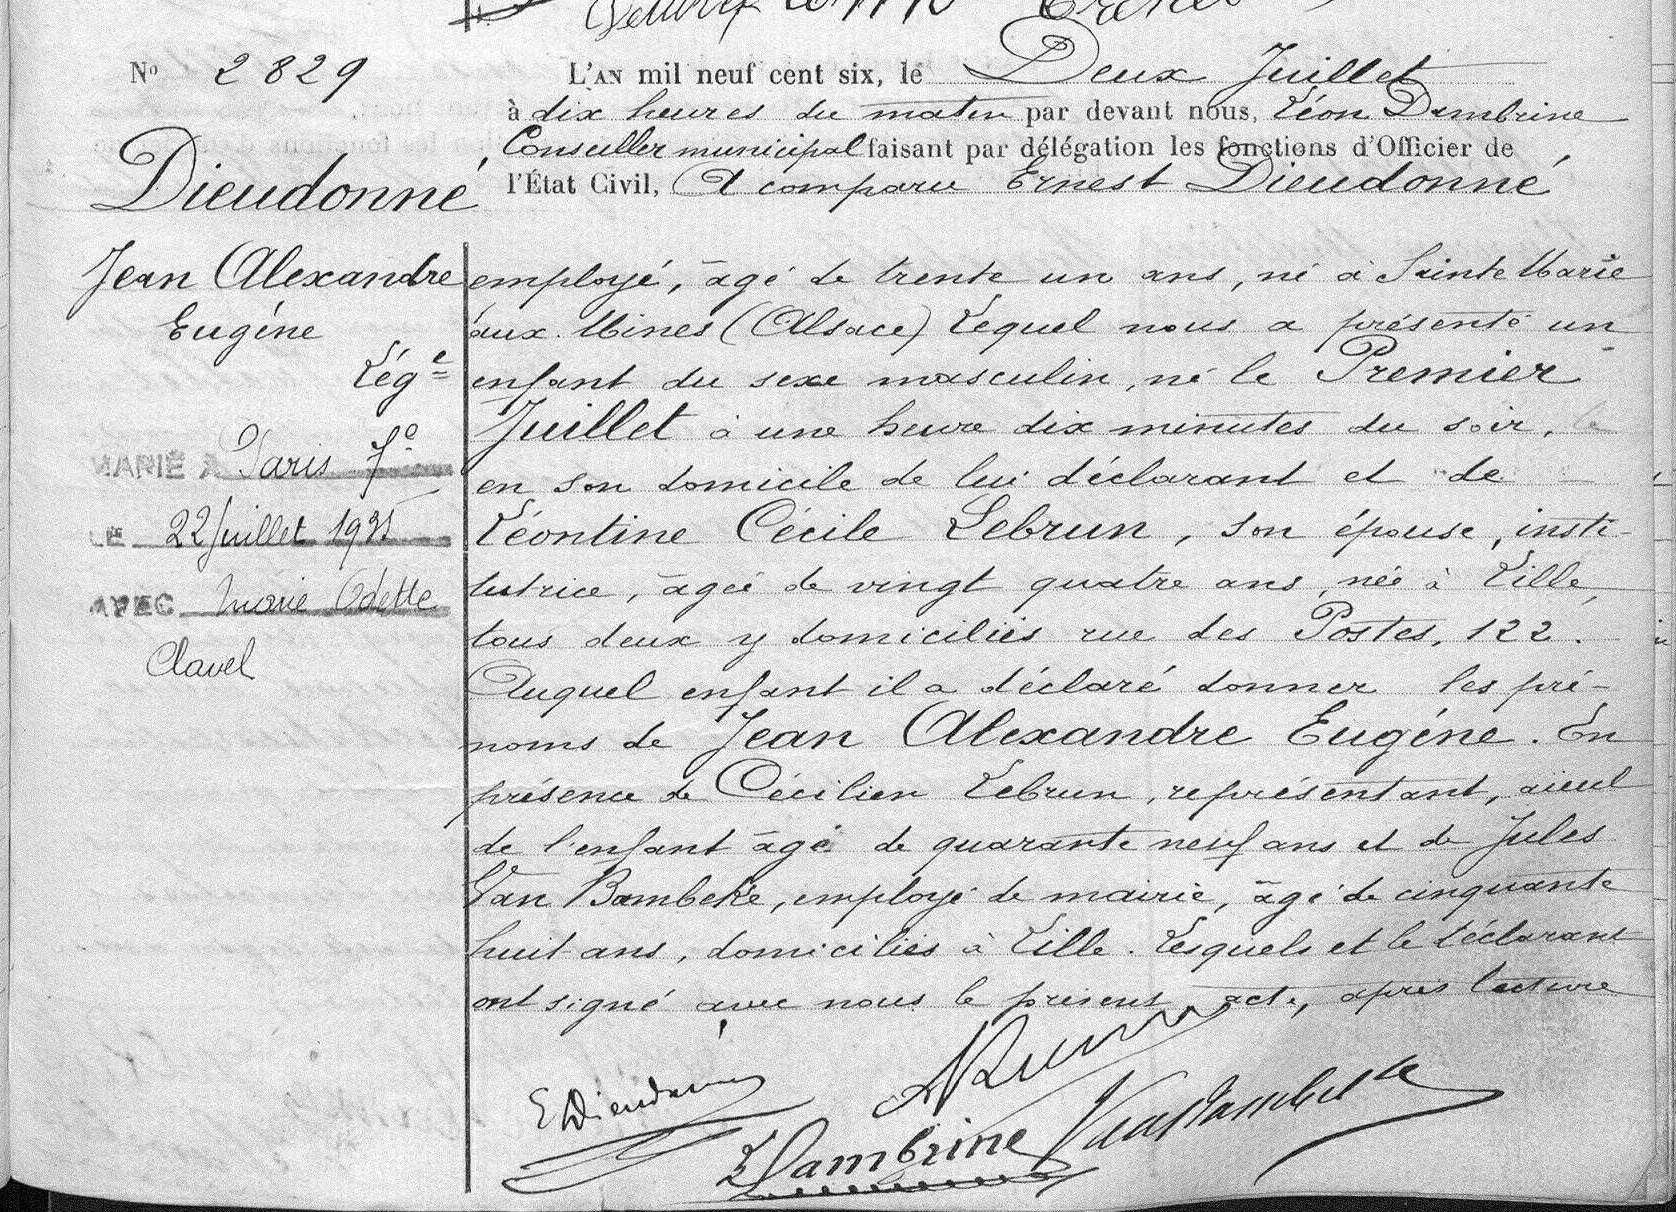 Nº 2829
Dieudonné
Jean Alexandre
Eugéne
Lég^e
MARIÉ À Paris 7^e
LE 22 Juillet 1931
AVEC Marie Odette
Clavel
L'AN mil neuf cent six, le Deux Juillet
à dix heures du matin par devant nous, Léon Dambrine
Conseiller municipal faisant par délégation les fonctions d'Officier de
l'État Civil, A comparu Ernest Dieudonné
employé, âgé de trente un ans, né à Sainte Marie
aux Mines (Alsace) Lequel nous a présenté un
enfant du sexe masculin, né le Premier
Juillet à une heure dix minutes du soir,
en son domicile de lui déclarant et de
Léontine Cécile Lebrun, son épouse, insti-
tutrice, âgée de vingt quatre ans, née à Lille,
tous deux y domiciliés rue des Postes, 122.
Auquel enfant il a déclaré donner les pré-
noms de Jean Alexandre Eugéne. En
présence de Cécilien Lebrun, représentant, aïeul
de l'enfant âgé de quarante neuf ans et de Jules
Van Bambeke, employé de mairie, âgé de cinquante
huit ans, domiciliés à Lille. Lesquels et le déclarant
ont signé avec nous le présent acte, après lecture
E Dieudonné
L Dambrine
VanBambeke